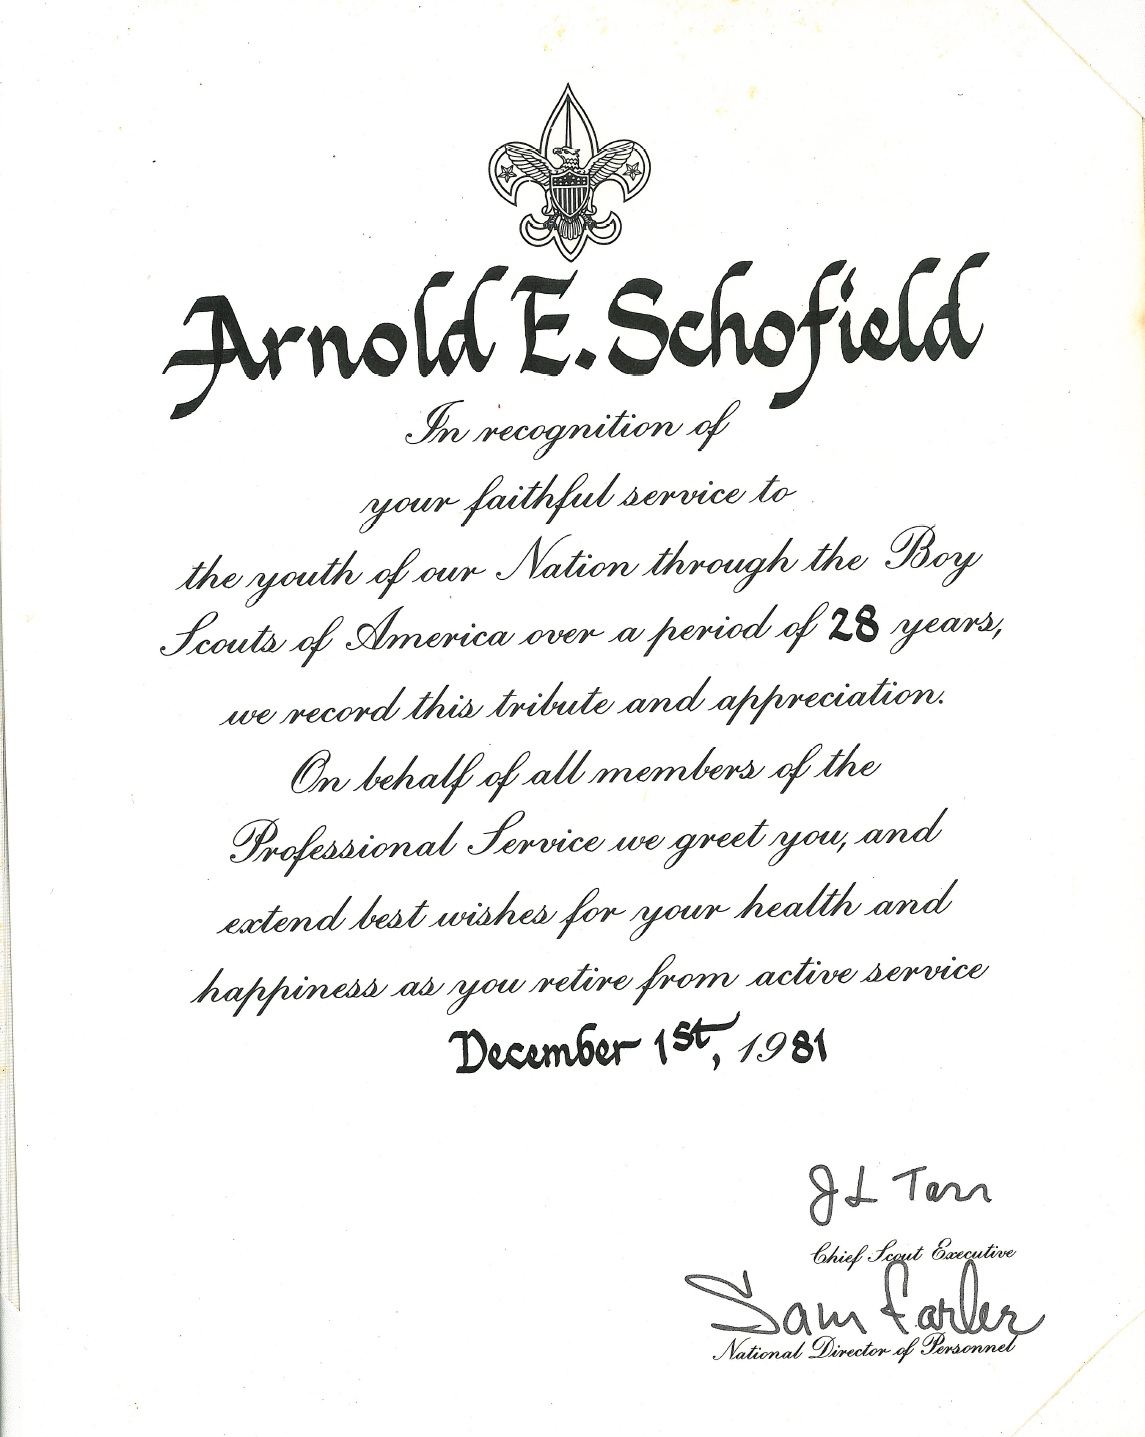 Arnold E. Schofield
In recognition of
your faithful service to
the youth of our Nation through the Boy
Scouts of America over a period of 28 years,
we record this tribute and appreciation.
On behalf of all members of the
Professional Service we greet you, and
extend best wishes for your health and
happiness as you retire from active service
December 1st, 1981
J L Tarr
Chief Scout Executive
Sam Farler
National Director of Personnel